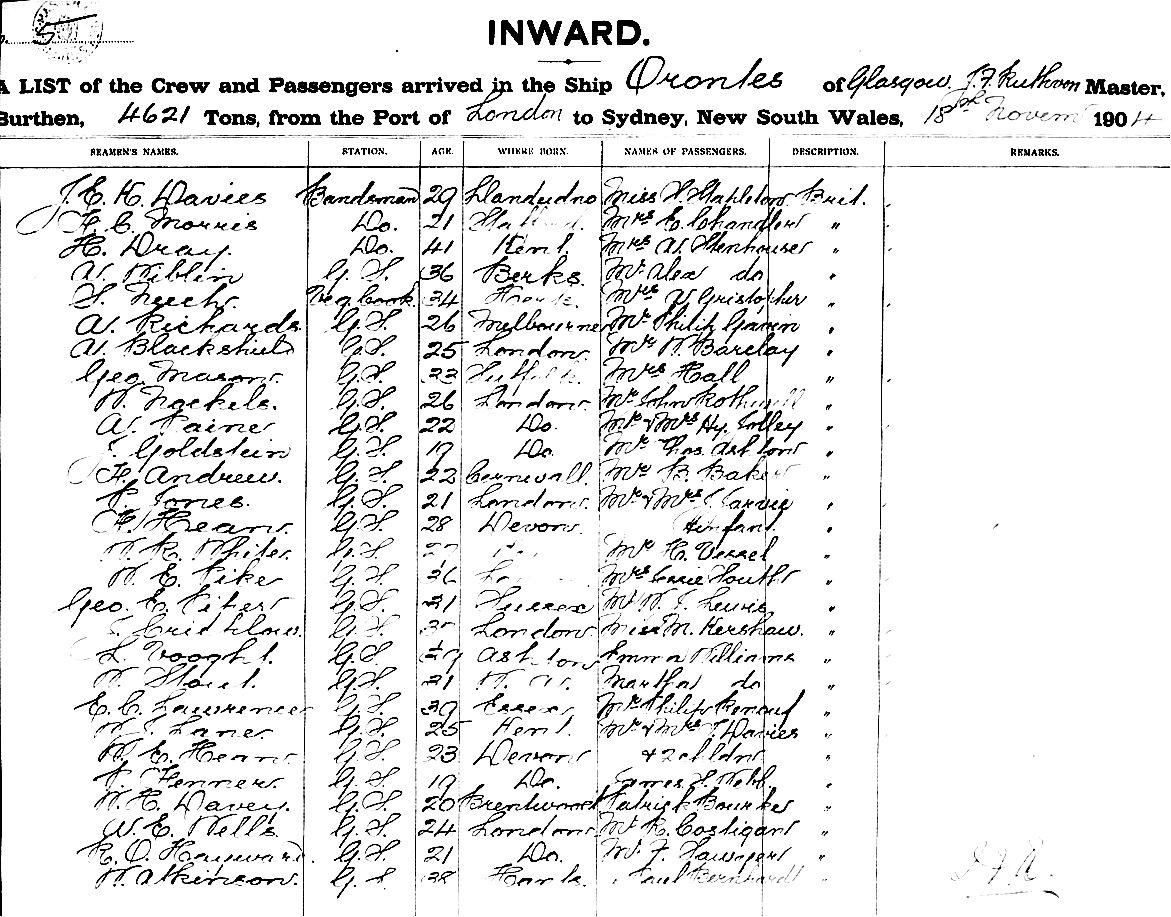 5
INWARD.
A LIST of the Crew and Passengers arrived in the Ship Orontes of Glasgow, J. F. Ruthven Master,
Burthen, 4621 Tons, from the Port of London to Sydney, New South Wales, 18th Novem 1904
SEAMEN'S NAMES. STATION. AGE. WHERE BORN. NAMES OF PASSENGERS. DESCRIPTION. REMARKS.
J. E. H. Davies Bandsman 29 Llandudno Miss Mapleton Brit.
C. Morris Do. 21 Mrs E. Chandler "
H. Dray. Do. 41 Kent. Mrs W. Stenhouser "
W. Niblin G. S. 36 Berks. Mr Alex do "
Veg Cook 34 Mrs Gristopher "
W. Richards G.S. 26 Melbourne Mr Philip Gavin "
W. Blackshield G.S. 25 London. Mr W. Barclay "
Geo. Mason. G.S. 23 Suffolk. Mrs Hall "
G.S. 26 London. Mr John Rothwell "
W. Paine G.S. 22 Do. Mr & Mrs Hy. Jolley "
J. Goldstein G.S. 19 Do. Mr Thos. Ashton "
Andrew. G.S. 22 Cornwall. Mr B. Baker "
P. Jones. G.S. 21 London. Mr & Mrs J. Jarvie "
Hearn. G.S. 28 Devon. & infant. "
W. R. White. G.S. Mr H. Vessel "
W. E. Pike G.S. Mrs South "
Geo. E. Piper G.S. 21 Sussex Mr W. J. Lewis "
G.S. London Miss M. Kershaw. "
L. Vooght. G.S. Ashton Emma Williams "
G.S. 21 Martha do "
E. C. Lawrence G.S. 39 Essex Mr Philip Renouf "
W. J. Lane G.S. 25 Kent. Mr & Mrs J. Davies "
W. E. Hearn G.S. 23 Devon & 2 childn "
Fenner G.S. 19 Do. James Webb "
W. H. Davey. G.S. 20 Brentwood Patrick Bourke "
W. E. Wells. G.S. 24 London Mr R. Costigan "
R. O. Hayward. G.S. 21 Do. Mr F. "
W. Atkinson. G.S. 38 Hants. Paul Bernhardt "